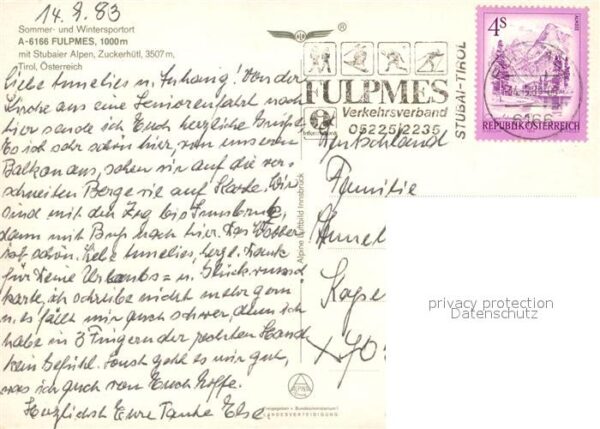 14.9.83
Sommer- und Wintersportort
A-6166 FULPMES, 1000m
mit Stubaier Alpen, Zuckerhütl, 3507m,
Tirol, Österreich
Liebe Annelies u. Anhang! Von der
Kirche aus eine Seniorenfahrt nach
hier sende ich Euch herzliche Grüße
Es ist sehr schön hier von unserem
Balkon aus, sehen wir auf die ver-
schneiten Berge wie auf Karte. Wir
sind mit den Zug bis Innsbruck,
dann mit Bus nach hier. Das Wetter
ist schön. Liebe Annelies, herzl. Dank
für Deine Urlaubs= u. Glückwunsch
karte, ich schreibe nicht mehr gern
u. es fällt mir auch schwer, denn ich
habe in 3 Fingern der rechten Hand
kein Gefühl. Sonst geht es mir gut,
was ich auch von Euch hoffe.
Herzlichst Eure Tante Else.
FULPMES
Verkehrsverband
05225/2235
STUBAI-TIROL
6166
4s
ALMSEE
REPUBLIK ÖSTERREICH
Deutschland
Familie
Annel
Kape
Alpine Luftbild Innsbruck
privacy protection
Datenschutz